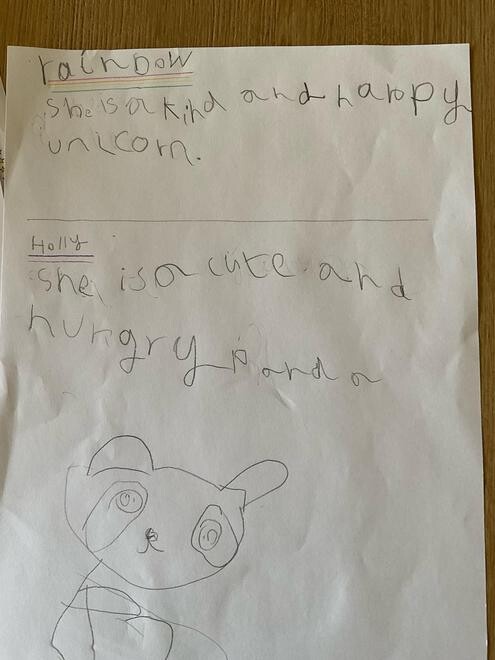 rainbow
She is a kind and happy
unicorn.
Holly
She is a cute and
hungry panda